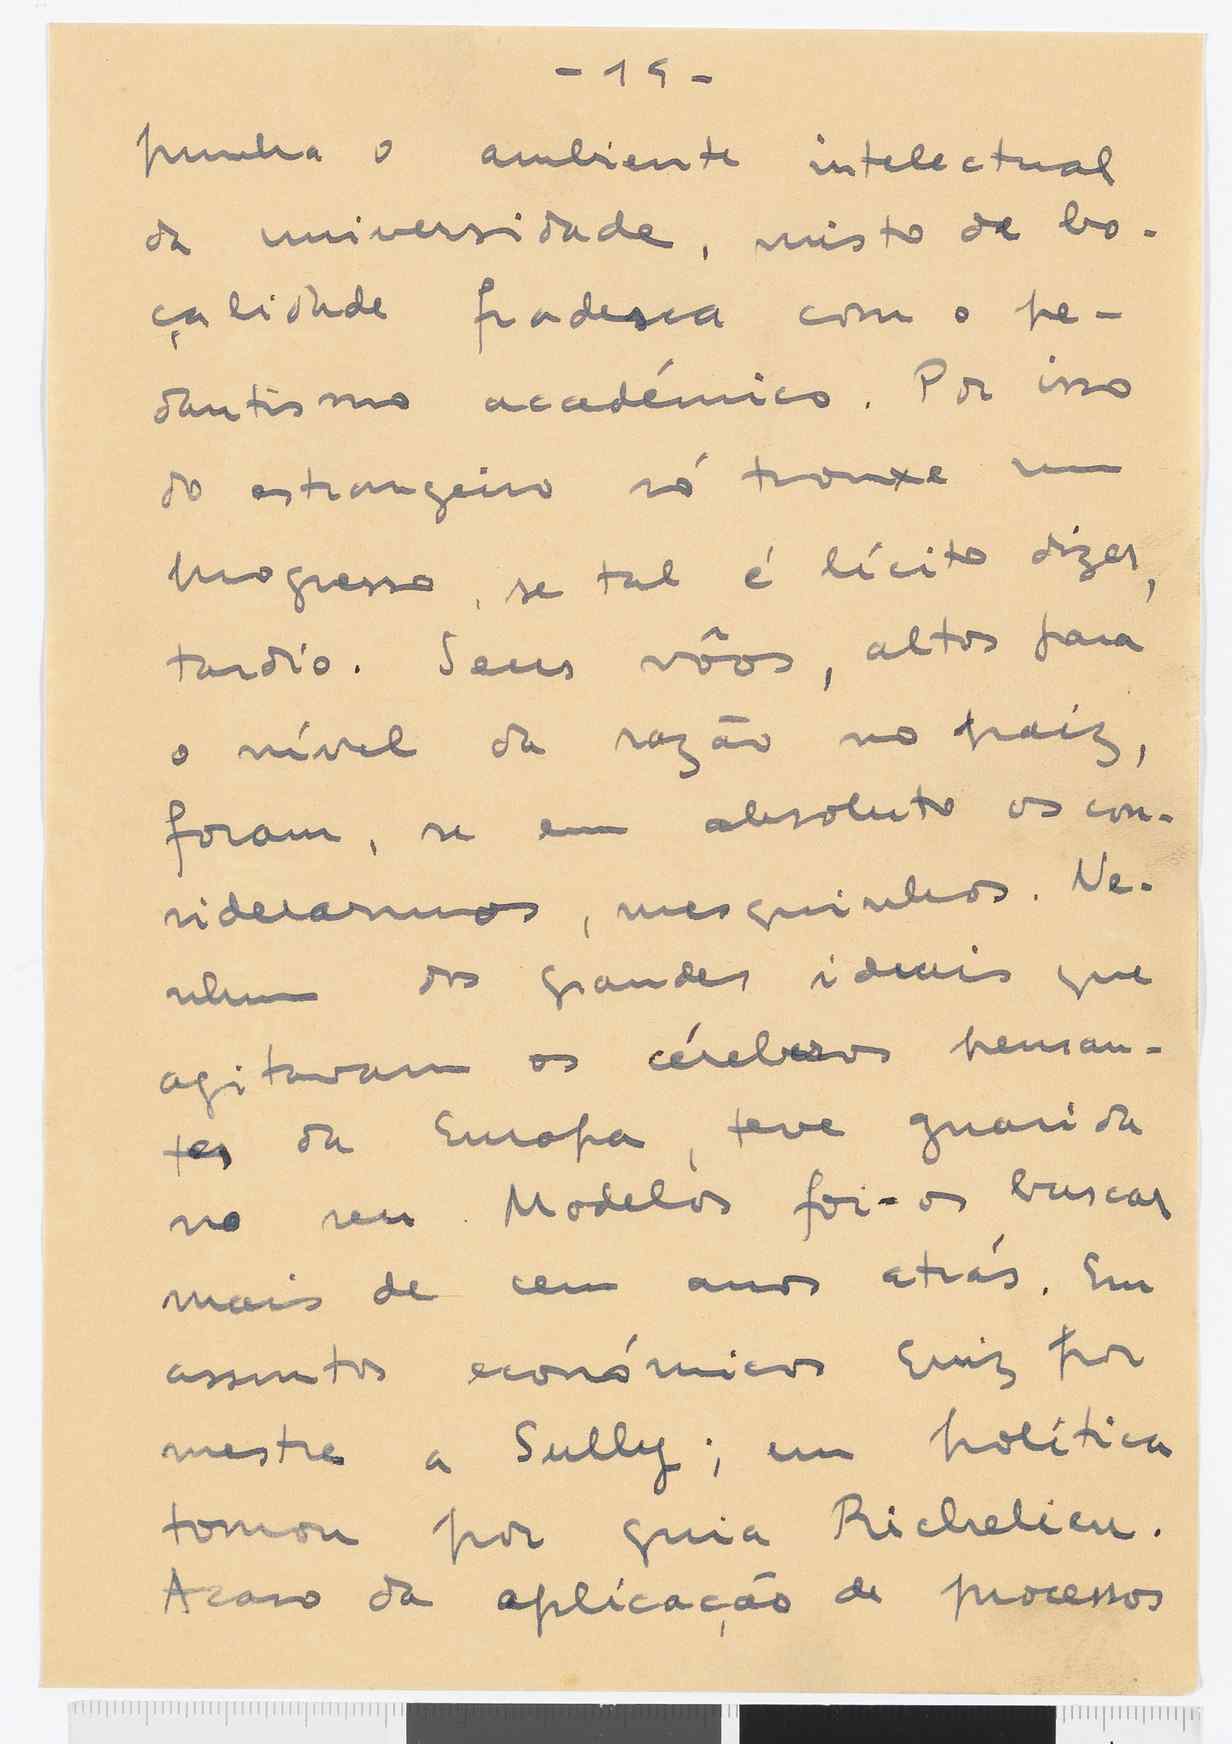 - 19 -
punha o ambiente intelectual
da universidade, misto de bo-
çalidade fradesca com o pe-
dantismo académico. Por isso
do estrangeiro só trouxe um
progresso, se tal é lícito dizer,
tardio. Seus vôos, altos para
o nível da razão no paiz,
foram, se em absoluto os con-
siderarmos, mesquinhos. Ne-
nhum dos grandes ideais que
agitavam os cérebros pensan-
tes da Europa, teve guarida
no seu. Modelos foi-os buscar
mais de cem anos atrás. Em
assuntos económicos quiz por
mestre a Sully; em política
tomou por guia Richelieu.
Acaso da aplicação de processos